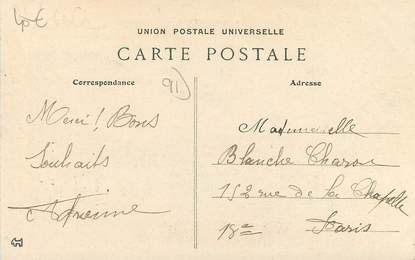 40€
UNION POSTALE UNIVERSELLE
CARTE POSTALE
Correspondance
91
Adresse
Merci! Bons
Souhaits
Adrienne
Mademoiselle
Blanche Charon
152 rue de la Chapelle
18e Paris